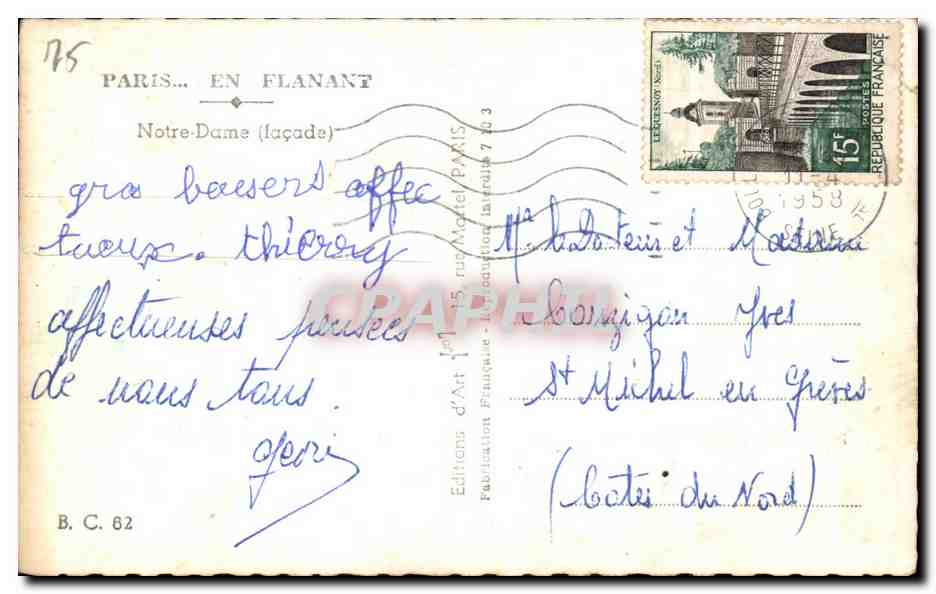 75
PARIS... EN FLANANT
Notre-Dame (façade)
gros baisers affec
tueux. thierry
affectueuses pensées
de nous tous.
B. C. 82
Editions d'Art 15, rue Martel PARIS
Fabrication Française - Reproduction Interdite 7 10 3
CPAPHIL
LE QUESNOY (Nord)
15F
POSTES
REPUBLIQUE FRANÇAISE
1958
SEINE
Mr le Docteur et Madame
Couzigou Yves
St Michel en Grèves
(Côtes du Nord)